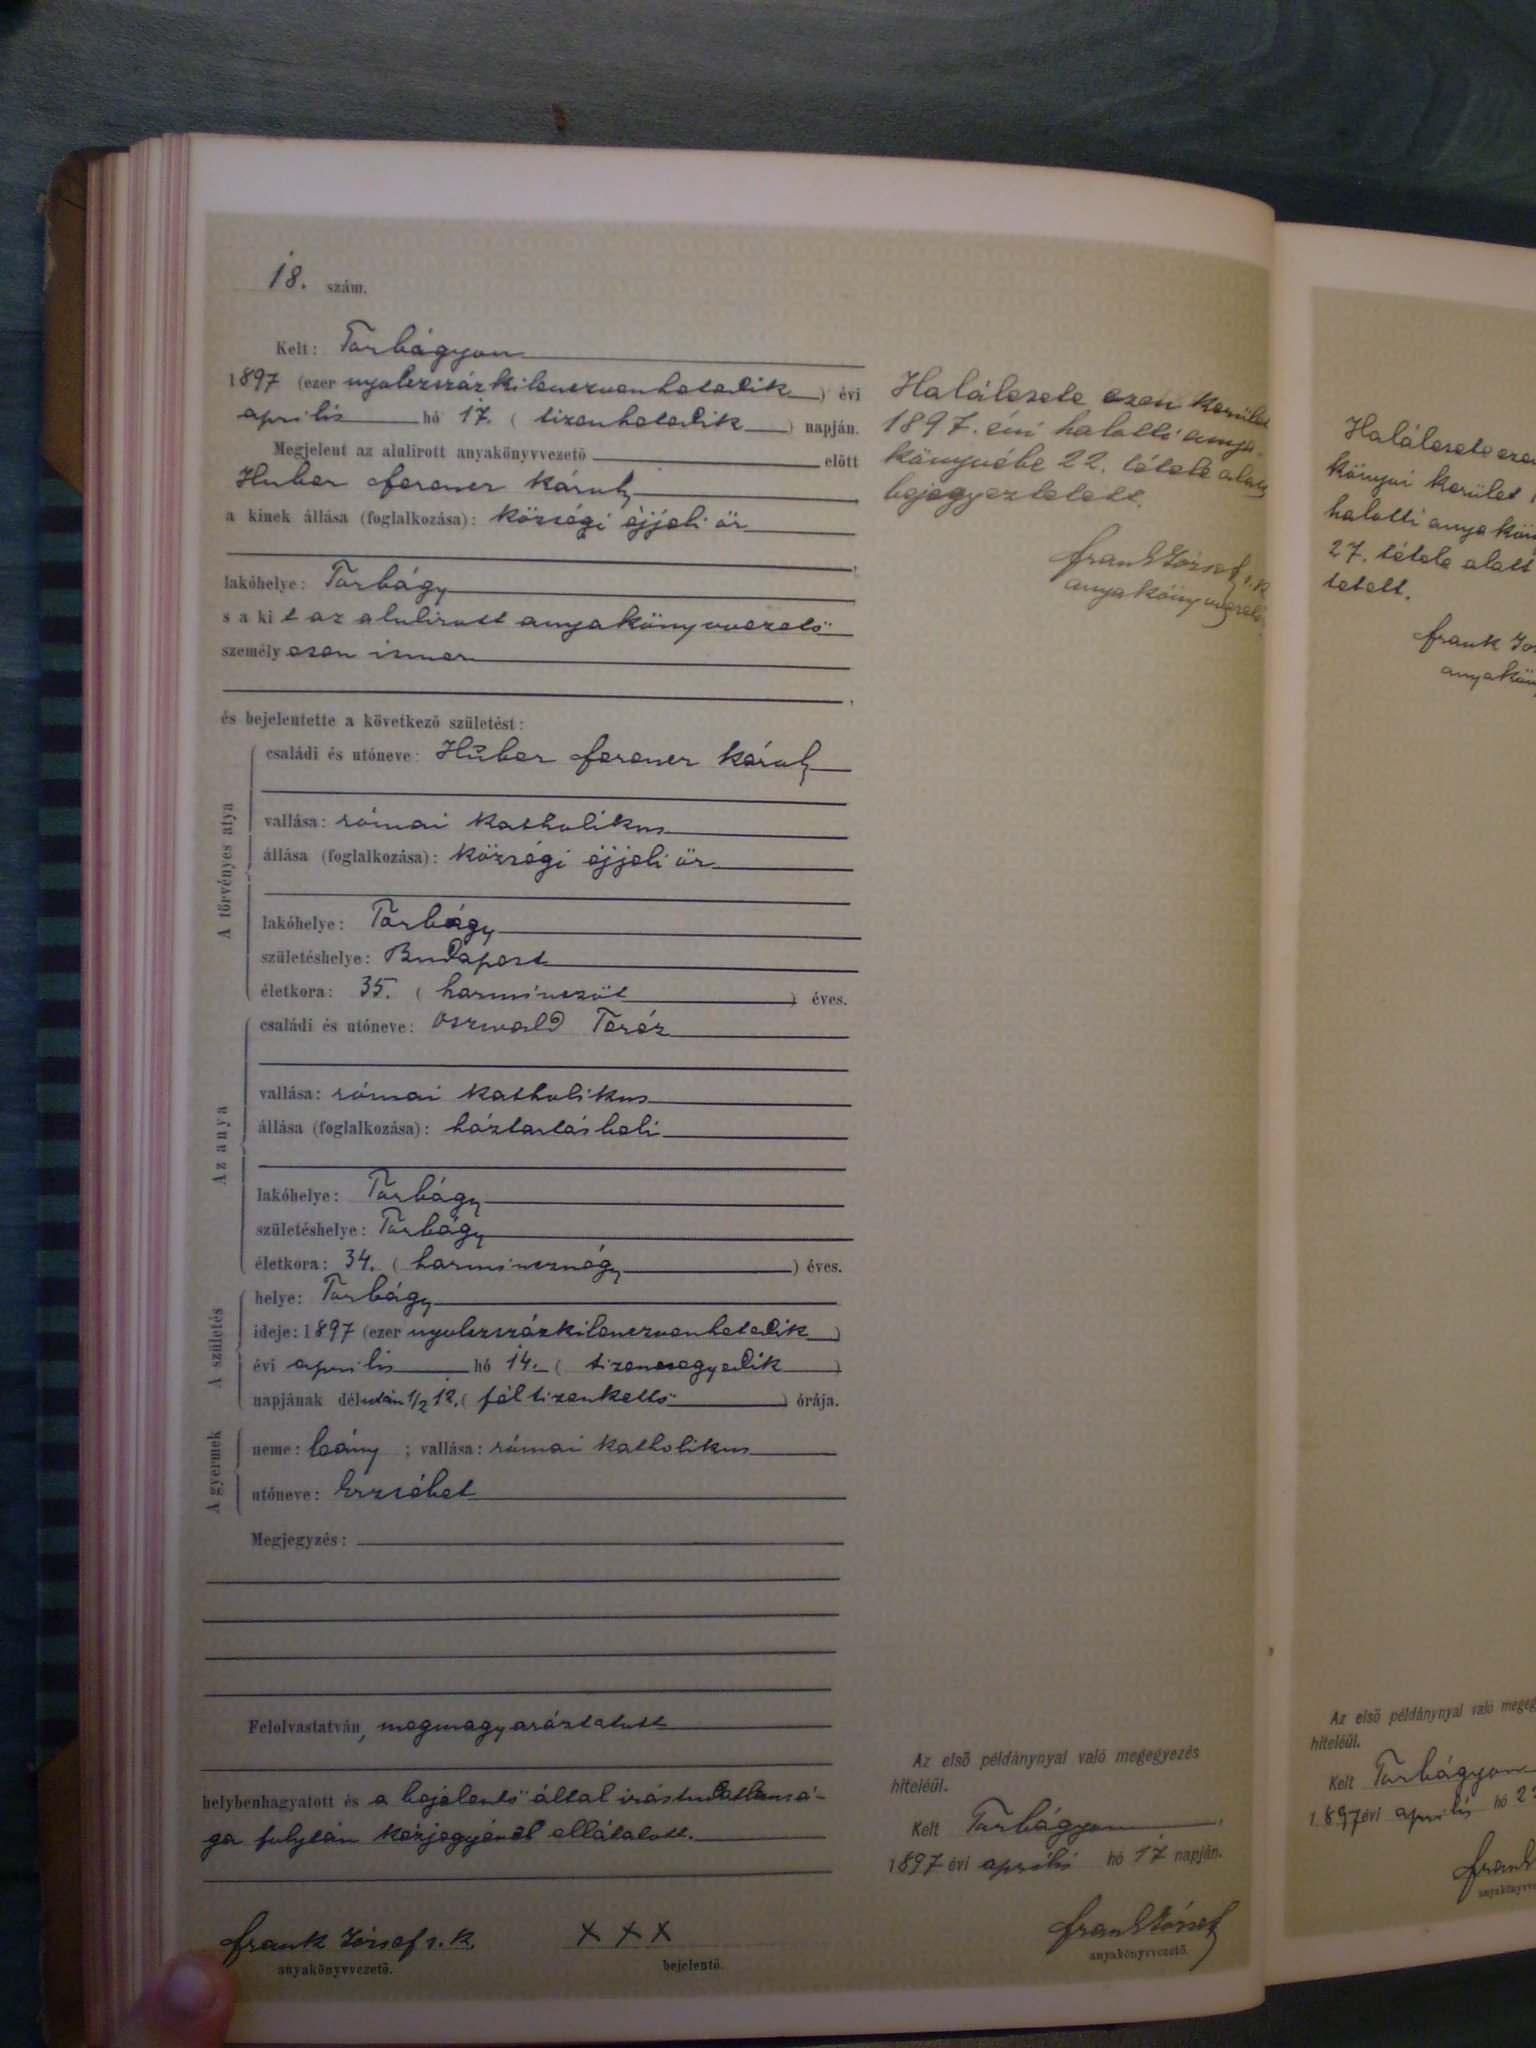 18. szám.
Kelt: Torbágyon
1897 (ezer nyolczszázkilenczvenhetedik) évi
április hó 17. (tizenhetedik) napján.
Megjelent az alulirott anyakönyvvezető előtt
Huber Ferencz Károly
a kinek állása (foglalkozása): községi éjjeli őr
lakóhelye: Torbágy
s a kit az alulirott anyakönyvvezető
személyesen ismer
és bejelentette a következő születést:
A törvényes atya
családi és utóneve: Huber Ferencz Károly
vallása: római katholikus
állása (foglalkozása): községi éjjeli őr
lakóhelye: Torbágy
születéshelye: Budapest
életkora: 35. (harminczöt) éves.
Az anya
családi és utóneve: Oszwald Teréz
vallása: római katholikus
állása (foglalkozása): háztartásbeli
lakóhelye: Torbágy
születéshelye: Torbágy
életkora: 34. (harmincznégy) éves.
A születés
helye: Torbágy
ideje: 1897 (ezer nyolczszázkilenczvenhetedik)
évi április hó 14. (tizennegyedik)
napjának délután 1/2 12. (fél tizenkettő) órája.
A gyermek
neme: leány; vallása: római katholikus
utóneve: Erzsébet
Megjegyzés:
Felolvastatván, megmagyaráztatott
helybenhagyatott és a bejelentő által irástudatlansá-
ga folytán kézjegyével elláttatott.
Frank József s. k.
anyakönyvvezető.
X X X
bejelentő.
Halálesete ezen kerület
1897. évi halotti anya-
könyvébe 22. tétele alatt
bejegyeztetett.
Frank József s. k
anyakönyvvezető
Az első példánynyal való megegyezés
hiteléül.
Kelt Torbágyon,
1897 évi április hó 17 napján.
Frank József
anyakönyvvezető.
Halálesete ezen
könyvi kerület
halotti anyakön
27. tétele alatt
tetett.
Frank Jó
anyakön
Az első példánynyal való megeg
hiteléül.
Kelt Torbágyon
1897 évi április hó 2
Frank
anyakönyvve